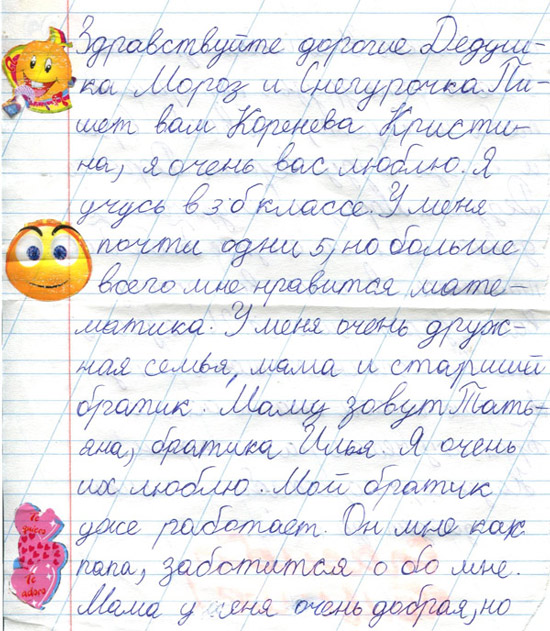 Здравствуйте дорогие Дедуш-
ка Мороз и Снегурочка. Пи-
шет вам Коренева Кристи-
на, я очень вас люблю. Я
учусь в 3 "б" классе. У меня
почти одни 5, но больше
всего мне нравится мате-
матика. У меня очень друж-
ная семья, мама и старший
братик. Маму зовут Тать-
яна, братика Илья. Я очень
их люблю. Мой братик
уже работает. Он мне как
папа, заботится о бо мне.
Мама у меня очень добрая, но
Te quiero
Te adoro